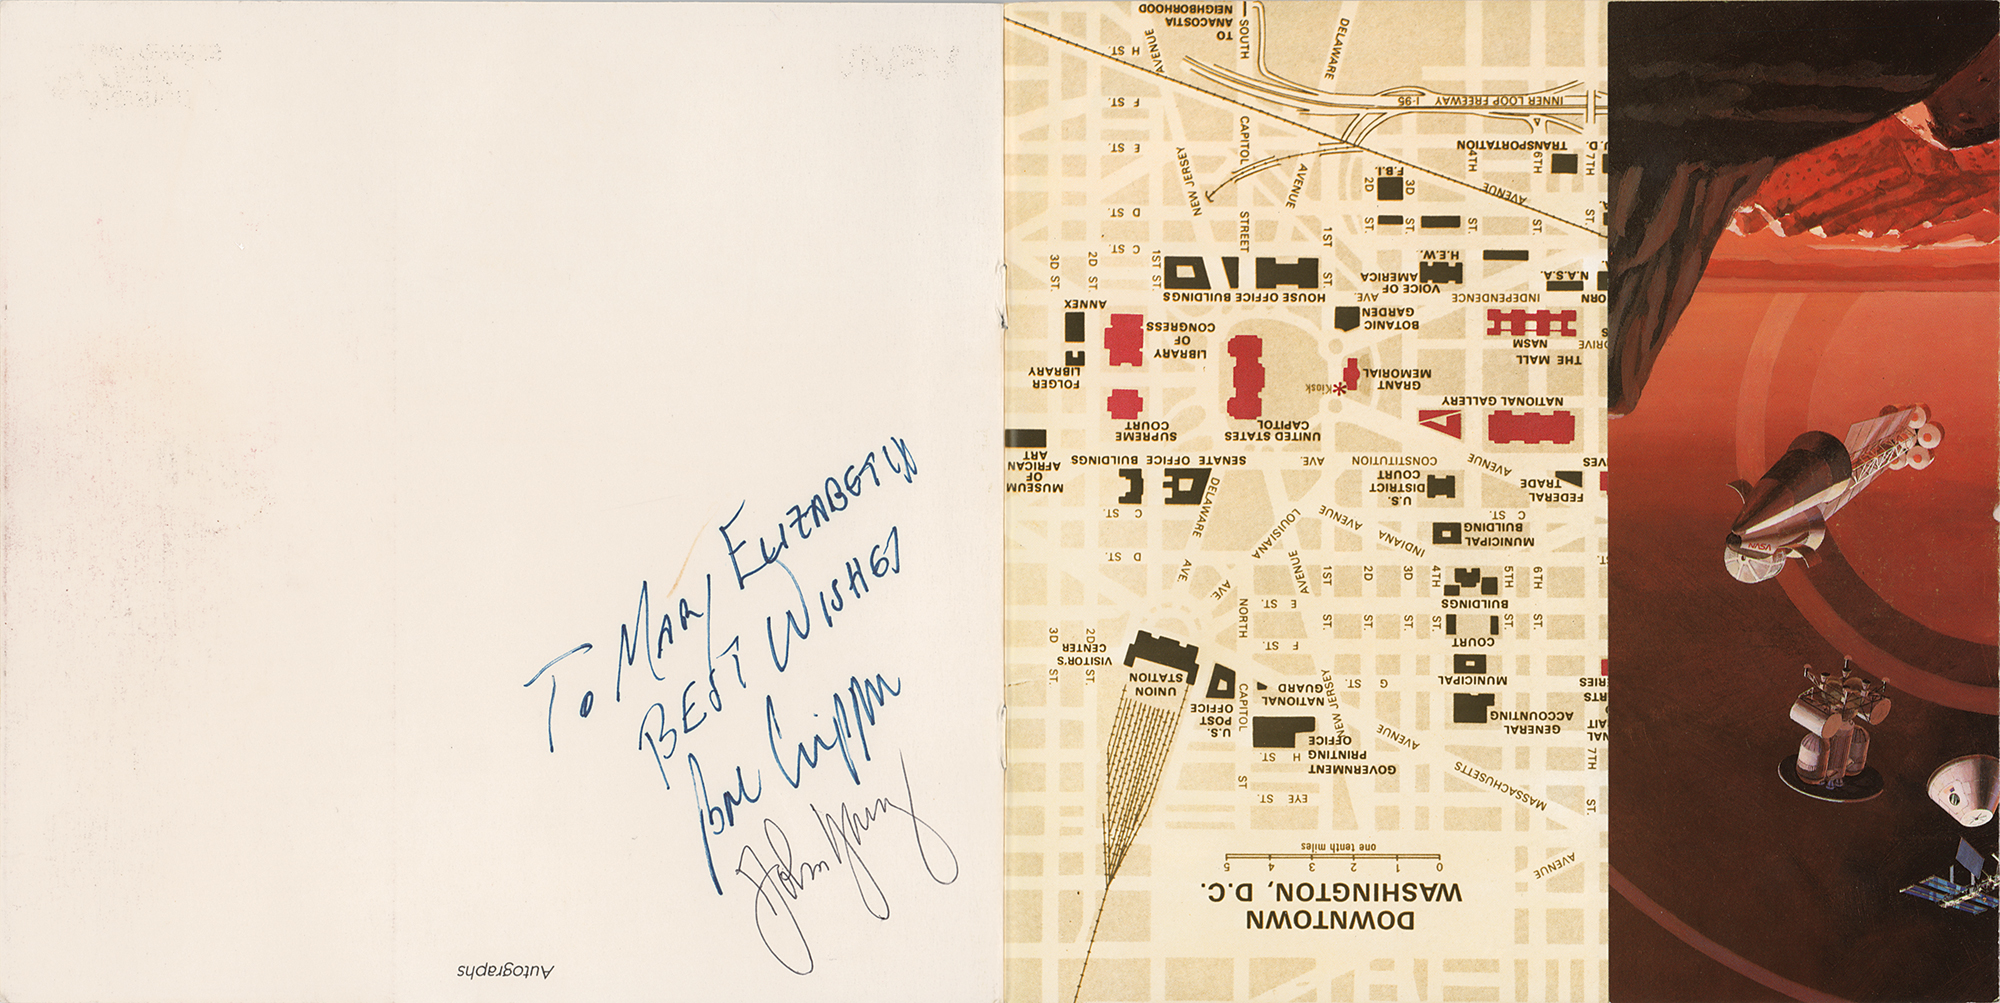 To MARY ELIZABETH
BEST WISHES
Bob Crippen
John Young
Autographs
DOWNTOWN
WASHINGTON, D.C.
0 1 2 3 4 5
one tenth miles
AVENUE
MASSACHUSETTS
EYE ST.
GOVERNMENT
PRINTING
OFFICE
H ST.
ST
7TH
ST.
GENERAL
ACCOUNTING
AVENUE
NATIONAL
GUARD
U.S.
POST
OFFICE
CAPITOL
NEW JERSEY
G ST.
MUNICIPAL
COURT
BUILDINGS
UNION
STATION
VISITOR'S
CENTER
2D
ST.
3D
ST.
F ST.
E ST.
NORTH
AVENUE
1ST
ST.
2D
ST.
3D
ST.
4TH
ST.
5TH
ST.
6TH
ST.
MUNICIPAL
BUILDING
INDIANA
AVENUE
LOUISIANA
AVE.
DELAWARE
AVE.
D ST.
C ST.
C ST.
FEDERAL
TRADE
U.S.
DISTRICT
COURT
MUSEUM
OF
AFRICAN
ART
SENATE OFFICE BUILDINGS
AVE.
CONSTITUTION
AVENUE
SUPREME
COURT
UNITED STATES
CAPITOL
NATIONAL GALLERY
GRANT
MEMORIAL
Kiosk
FOLGER
LIBRARY
THE MALL
NASM
DRIVE
LIBRARY
OF
CONGRESS
BOTANIC
GARDEN
ANNEX
HOUSE OFFICE BUILDINGS
AVE.
INDEPENDENCE
VOICE OF
AMERICA
N.A.S.A.
H.E.W.
3D ST.
2D ST.
1ST ST.
1ST
ST.
C ST.
D ST.
STREET
NEW JERSEY
AVENUE
2D
ST.
3D
ST.
F.B.I.
AVENUE
4TH
ST.
6TH
ST.
7TH
ST.
TRANSPORTATION
E ST.
CAPITOL
F ST.
I-95
INNER LOOP FREEWAY
H ST.
AVENUE
SOUTH
DELAWARE
TO
ANACOSTIA
NEIGHBORHOOD
NASA